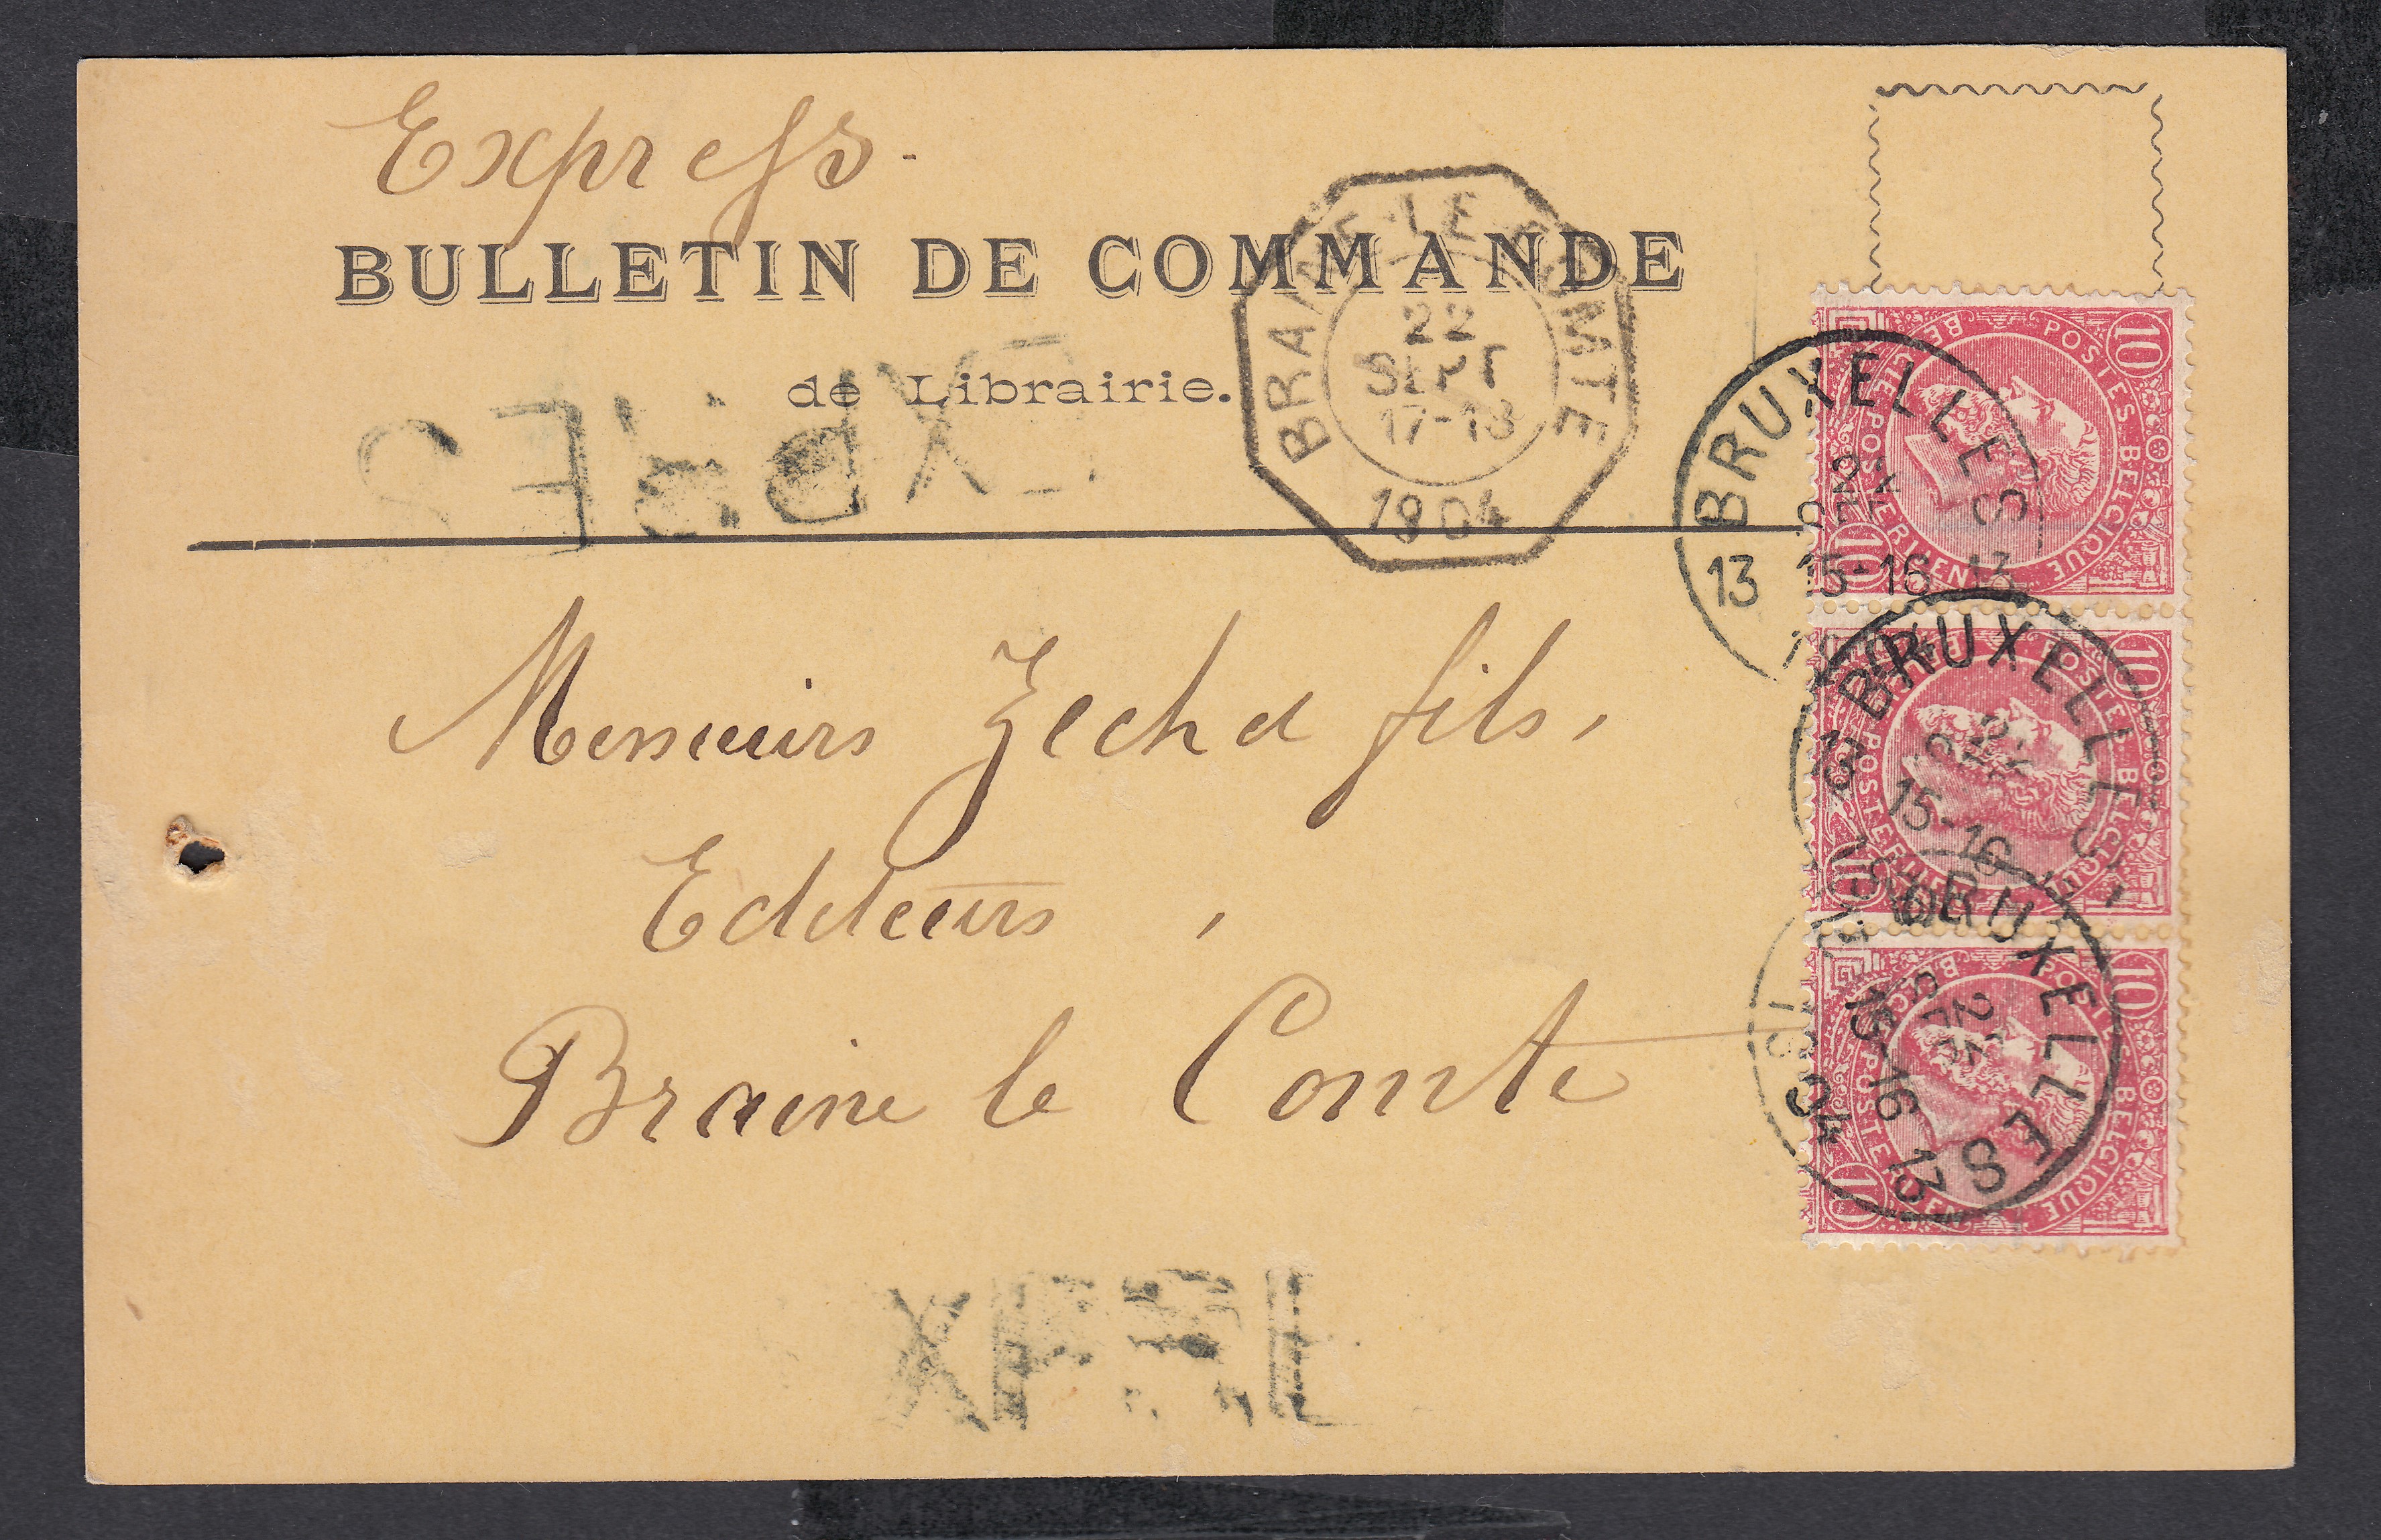 Express.
BULLETIN DE COMMANDE
de Librairie.
BRAINE-LE-COMTE
22
SEPT
17-18
1904
Messieurs Zech et fils,
Editeurs,
Braine le Comte
BRUXELLES
13 15-16 13
1904
BRUXELLES
13 15-16
BRUXELLES
15-16 13
POSTES BELGIQUE
10
10
POSTES BELGIQUE
10
10
POSTES BELGIQUE
10
10